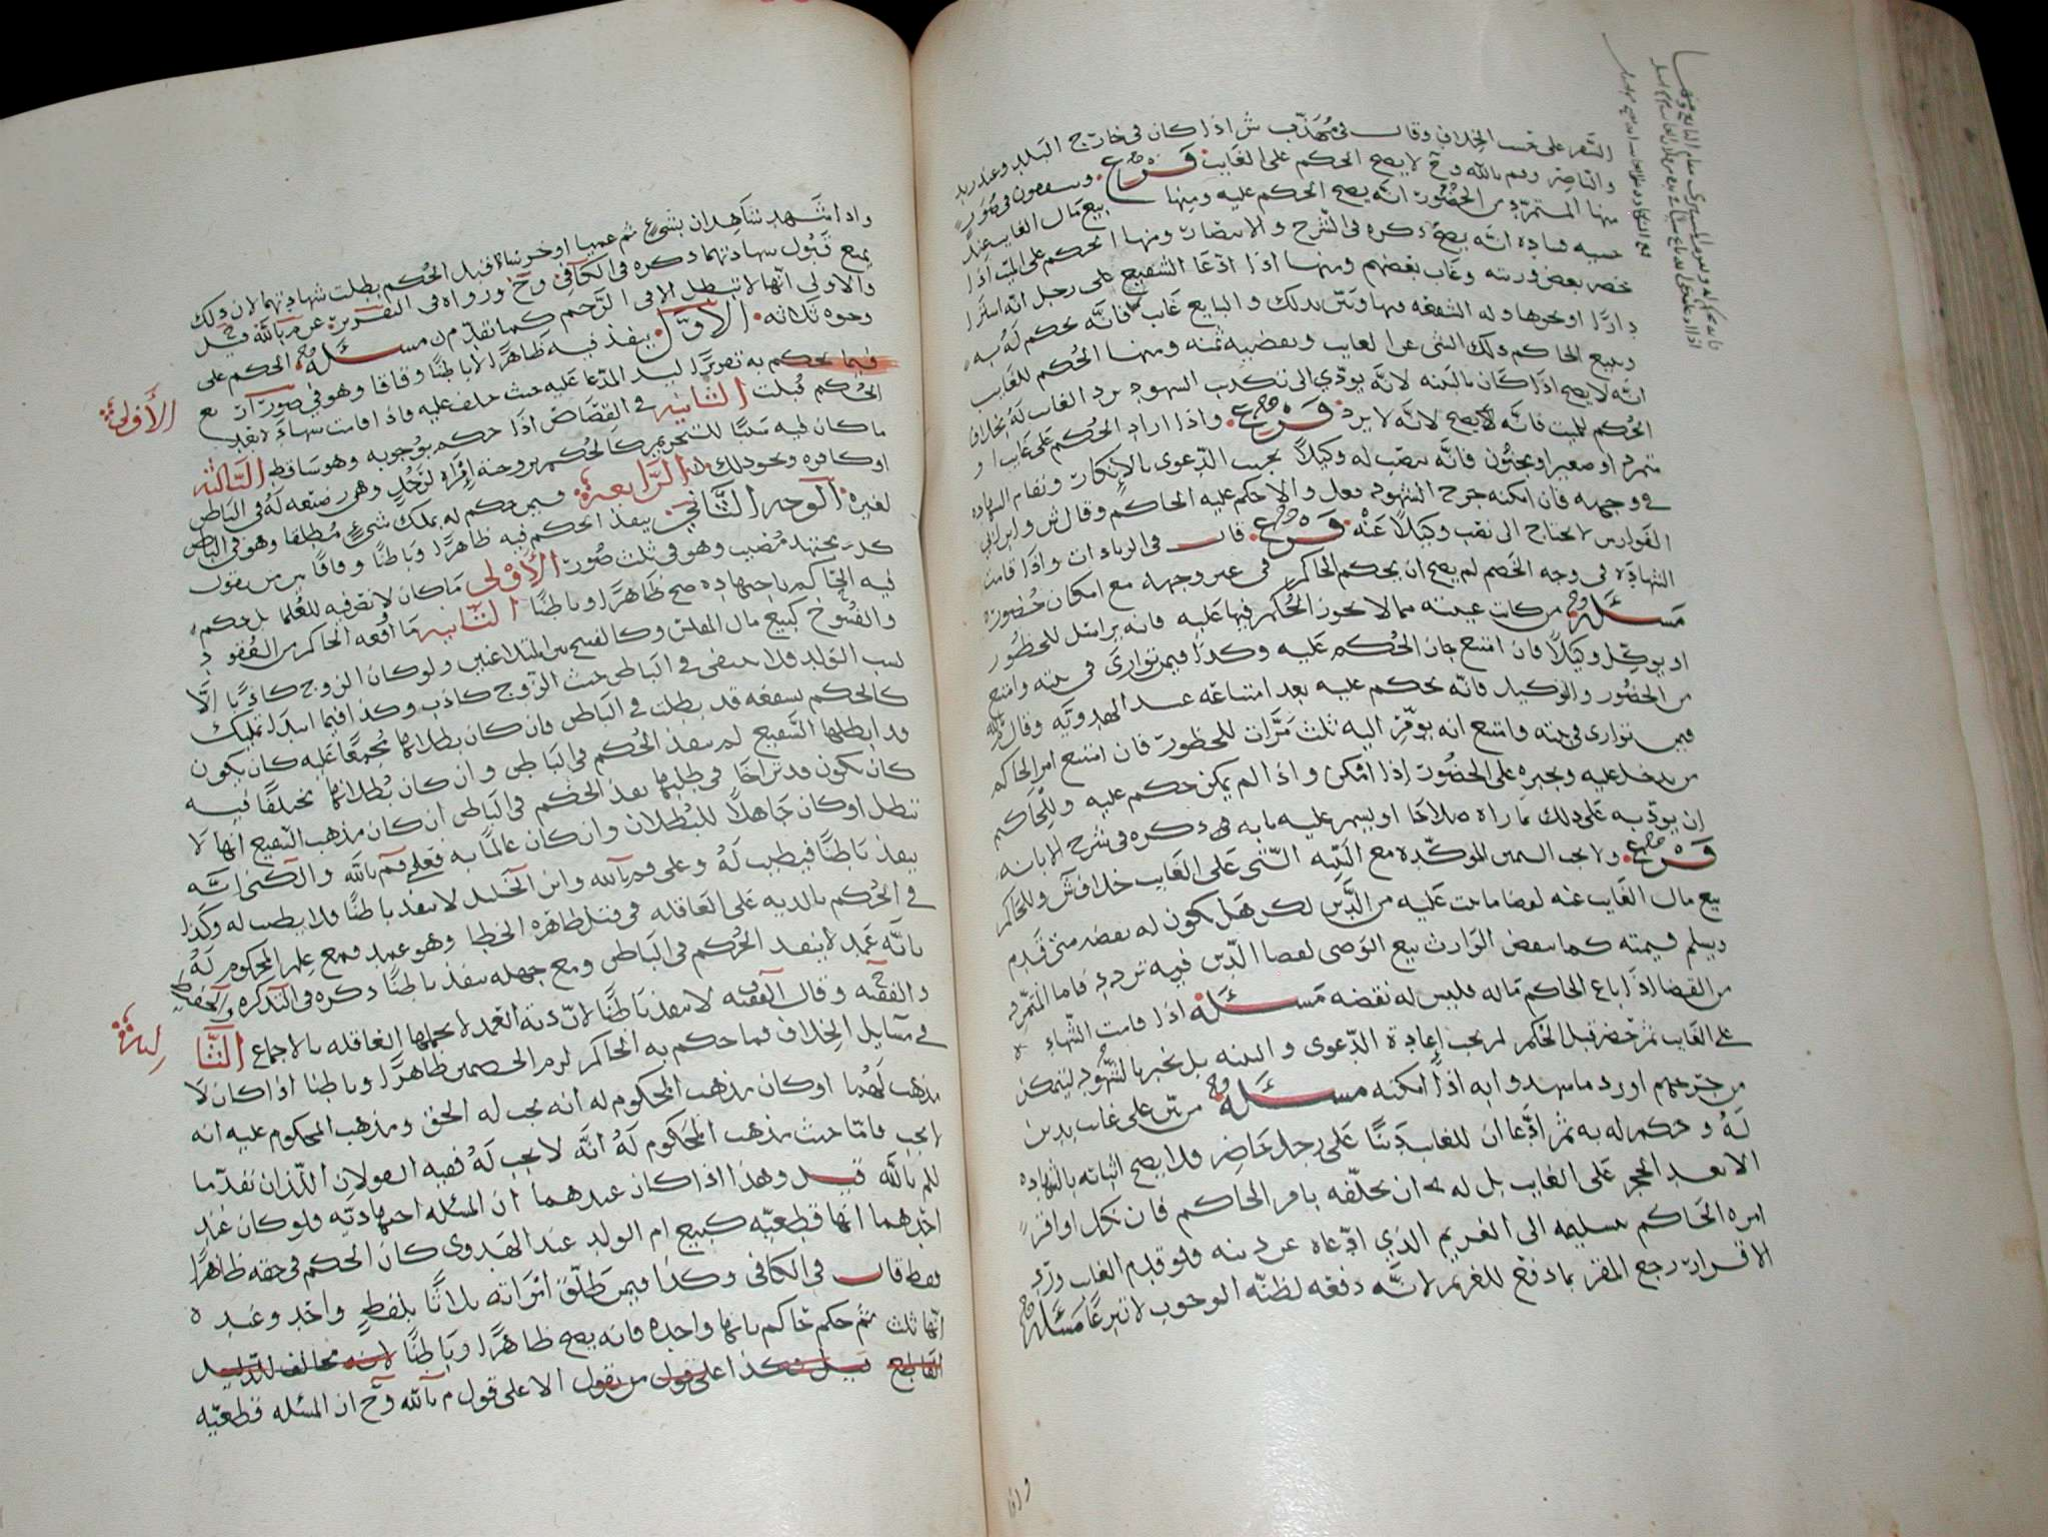 السفر على حسب الخلاف وقال في مهذب ش اذا كان في خارج البلد وعند زيد
والناصر وم بالله وح لا يصح الحكم على الغايب فرع وسقصون في صور
منها المتمرد من الحضور انه يصح الحكم عليه ومنها بيع مال الغايب عند
انه يصح ذكره في الشرح والانتصار ومنها الحكم على الميت اذا
حضر بعض ورثته وغاب بعضهم ومنها اذا ادعا الشفيع على رجل انه اشترا
دارا او نحوها وله الشفعه فيها وبين بذلك والبايع غايب فانه يحكم له به
وبيع الحاكم ذلك الشي عن الغايب ويقضيه ثمنه ومنها الحكم للغايب
انه لا يصح اذا كان بالبينه لانه يودي الى تكذيب الشهود برد الغايب له بخلاف
الحكم للميت فانه يصح لانه لا يرد فرع واذا اراد الحكم على غايب او
متمرد او صغير او مجنون فانه ينصب له وكيلا يجيب الدعوى بالانكار وتقام الشهاده
في وجهه فان امكنه جرح الشهود فعل والا حكم عليه الحاكم وقال ش وابن ابي
الفوارس لا يحتاج الى نصب وكيلا عنه فرع قال في الزيادات واذا قامت
الشهاده في وجه الخصم لم يصح ان يحكم الحاكم في غير وجهه مع امكان حضوره
مسئله من كانت غيبته مما لا يجوز الحكم فيها عليه فانه يراسل للحظور
او يوكل وكيلا فان امتنع جاز الحكم عليه وكذا فيمن توارى في بيته وامتنع
من الحضور والتوكيل فانه يحكم عليه بعد امتناعه عند الهدويه وقال م بالله
فيمن توارى في بيته وامتنع انه يوقر اليه ثلث مرات للحظور فان امتنع امر الحاكم
من يدخل عليه ويجبره على الحضور اذا امكن واذا لم يمكن حكم عليه وللحاكم
ان يودبه على ذلك بما راه صلاحا او يسمر عليه بابه ذكره في شرح الابانه
فرع ولا يجب اليمين الموكده مع البينه التي على الغايب خلاف ش وللحاكم
بيع مال الغايب عنه لقضا ما ثبت عليه من الدين لكن هل يكون له نقضه متى قدم
ويسلم قيمته كما ينقض الوارث بيع الوصي لقضا الدين فيه تردد فاما المتمرد
من القضا اذا باع الحاكم ماله فليس له نقضه مسئله اذا قامت الشهاده
على الغايب ثم حضر قبل الحكم لم يجب إعادة الدعوى والبينه بل يخبر بالشهود ليتمكن
من جرحهم او رد ما شهدوا به اذا امكنه مسئله من بين على غايب بدين
له وحكم له به ثم ادعا ان للغايب دينا على رجل حاضر فلا يصح اثباته بالشهاده
الا بعد الحجر على الغايب بل له ان يحلفه بامر الحاكم فان نكل او اقر
امره الحاكم بتسليمه الى الغريم الذي ادعاه عن دينه فلو قدم الغايب ورد
الاقرار رجع المقر بما دفع للغريم لانه دفعه لظنه الوجوب لا تبرعا مسئله
واذا
واذا شهد شاهدان بشيء ثم عميا او خرسا قبل الحكم بطلت شهادتهما لان ذلك
يمنع قبول شهادتهما ذكره في الكافي وح ورواه في التقرير عن م بالله قيل
والاولى انها لا تبطل الا في الرجم كما تقدم مسئله الحكم على
وجوه ثلاثه الاول ينفذ فيه ظاهرا لا باطنا وفاقا وهو في صور اربع
الأولى
فيما يحكم به تعزيرا ليد المدعا عليه حيث حلف عليه فاذا اقامت شهاده بعد
الحكم قبلت الثانيه في القصاص اذا حكم بوجوبه وهو ساقط الثالثه
ما كان فيه سببا للتحريم كالحكم بزوجية إمرأة لرجل وهي رضيعه له في الباطن
او كافره ونحو ذلك الرابعة فيمن حكم له بملك شيء مطلقا وهو في الباطن
لغيره الوجه الثاني ينفذ الحكم فيه ظاهرا وباطنا وفاقا بين من يقول
كل مجتهد مصيب وهو في ثلث صور الأولى ما كان لا نص فيه للعلما بل حكم
فيه الحاكم باجتهاده صح ظاهرا وباطنا الثانيه ما اوقعه الحاكم من العقود
والفسوخ كبيع مال المفلس وكالفسخ بين المتلاعنين ولو كان الزوج كاذبا الا
نسب الولد فلا ينتفي في الباطن حيث الزوج كاذب وكذا فيما ابتدا تمليك
كالحكم بشفعه قد بطلت في الباطن فان كان بطلانها مجمعا عليه كان يكون
قد ابطلها الشفيع لم ينفذ الحكم في الباطن وان كان بطلانها مختلفا فيه
كان يكون قد تراخا في طلبها نفذ الحكم في الباطن ان كان مذهب الشفيع انها لا
تبطل او كان جاهلا للبطلان وان كان عالما به فعلى قم بالله والكني انه
ينفذ باطنا فيطيب له وعلى قم بالله وابن الخليل لا ينفذ باطنا فلا يطيب له وكذا
في الحكم بالديه على العاقله في قتل ظاهره الخطا وهو عمد فمع علم المحكوم له
بانه عمد لا ينفذ الحكم في الباطن ومع جهله ينفذ باطنا ذكره في التذكره والحفيظ
والفقيه وقال الفقيه لا ينفذ باطنا لان دية العمد لا تحملها العاقله بالاجماع الثا
لثه
في مسايل الخلاف فما حكم به الحاكم لزم الخصمين ظاهرا وباطنا اذا كان لا
مذهب لهما او كان مذهب المحكوم له انه يجب له الحق ومذهب المحكوم عليه انه
لا يجب فاما حيث مذهب المحكوم له انه لا يجب له ففيه القولان اللذان تقدما
للم بالله قيل وهذا اذا كان عندهما ان المسئله اجتهاديه فلو كان عند
احدهما انها قطعيه كبيع ام الولد عند الهدوي كان الحكم في حقه ظاهرا
فقط قال في الكافي وكذا فيمن طلق امراته ثلاثا بلفظ واحد وعنده
انها ثلث ثم حكم حاكم بانها واحده فانه يصح ظاهرا وباطنا لانه مخالف للدليل
القاطع قيل هكذا على قول من يقول الا على قول م بالله وح ان المسئله قطعيه